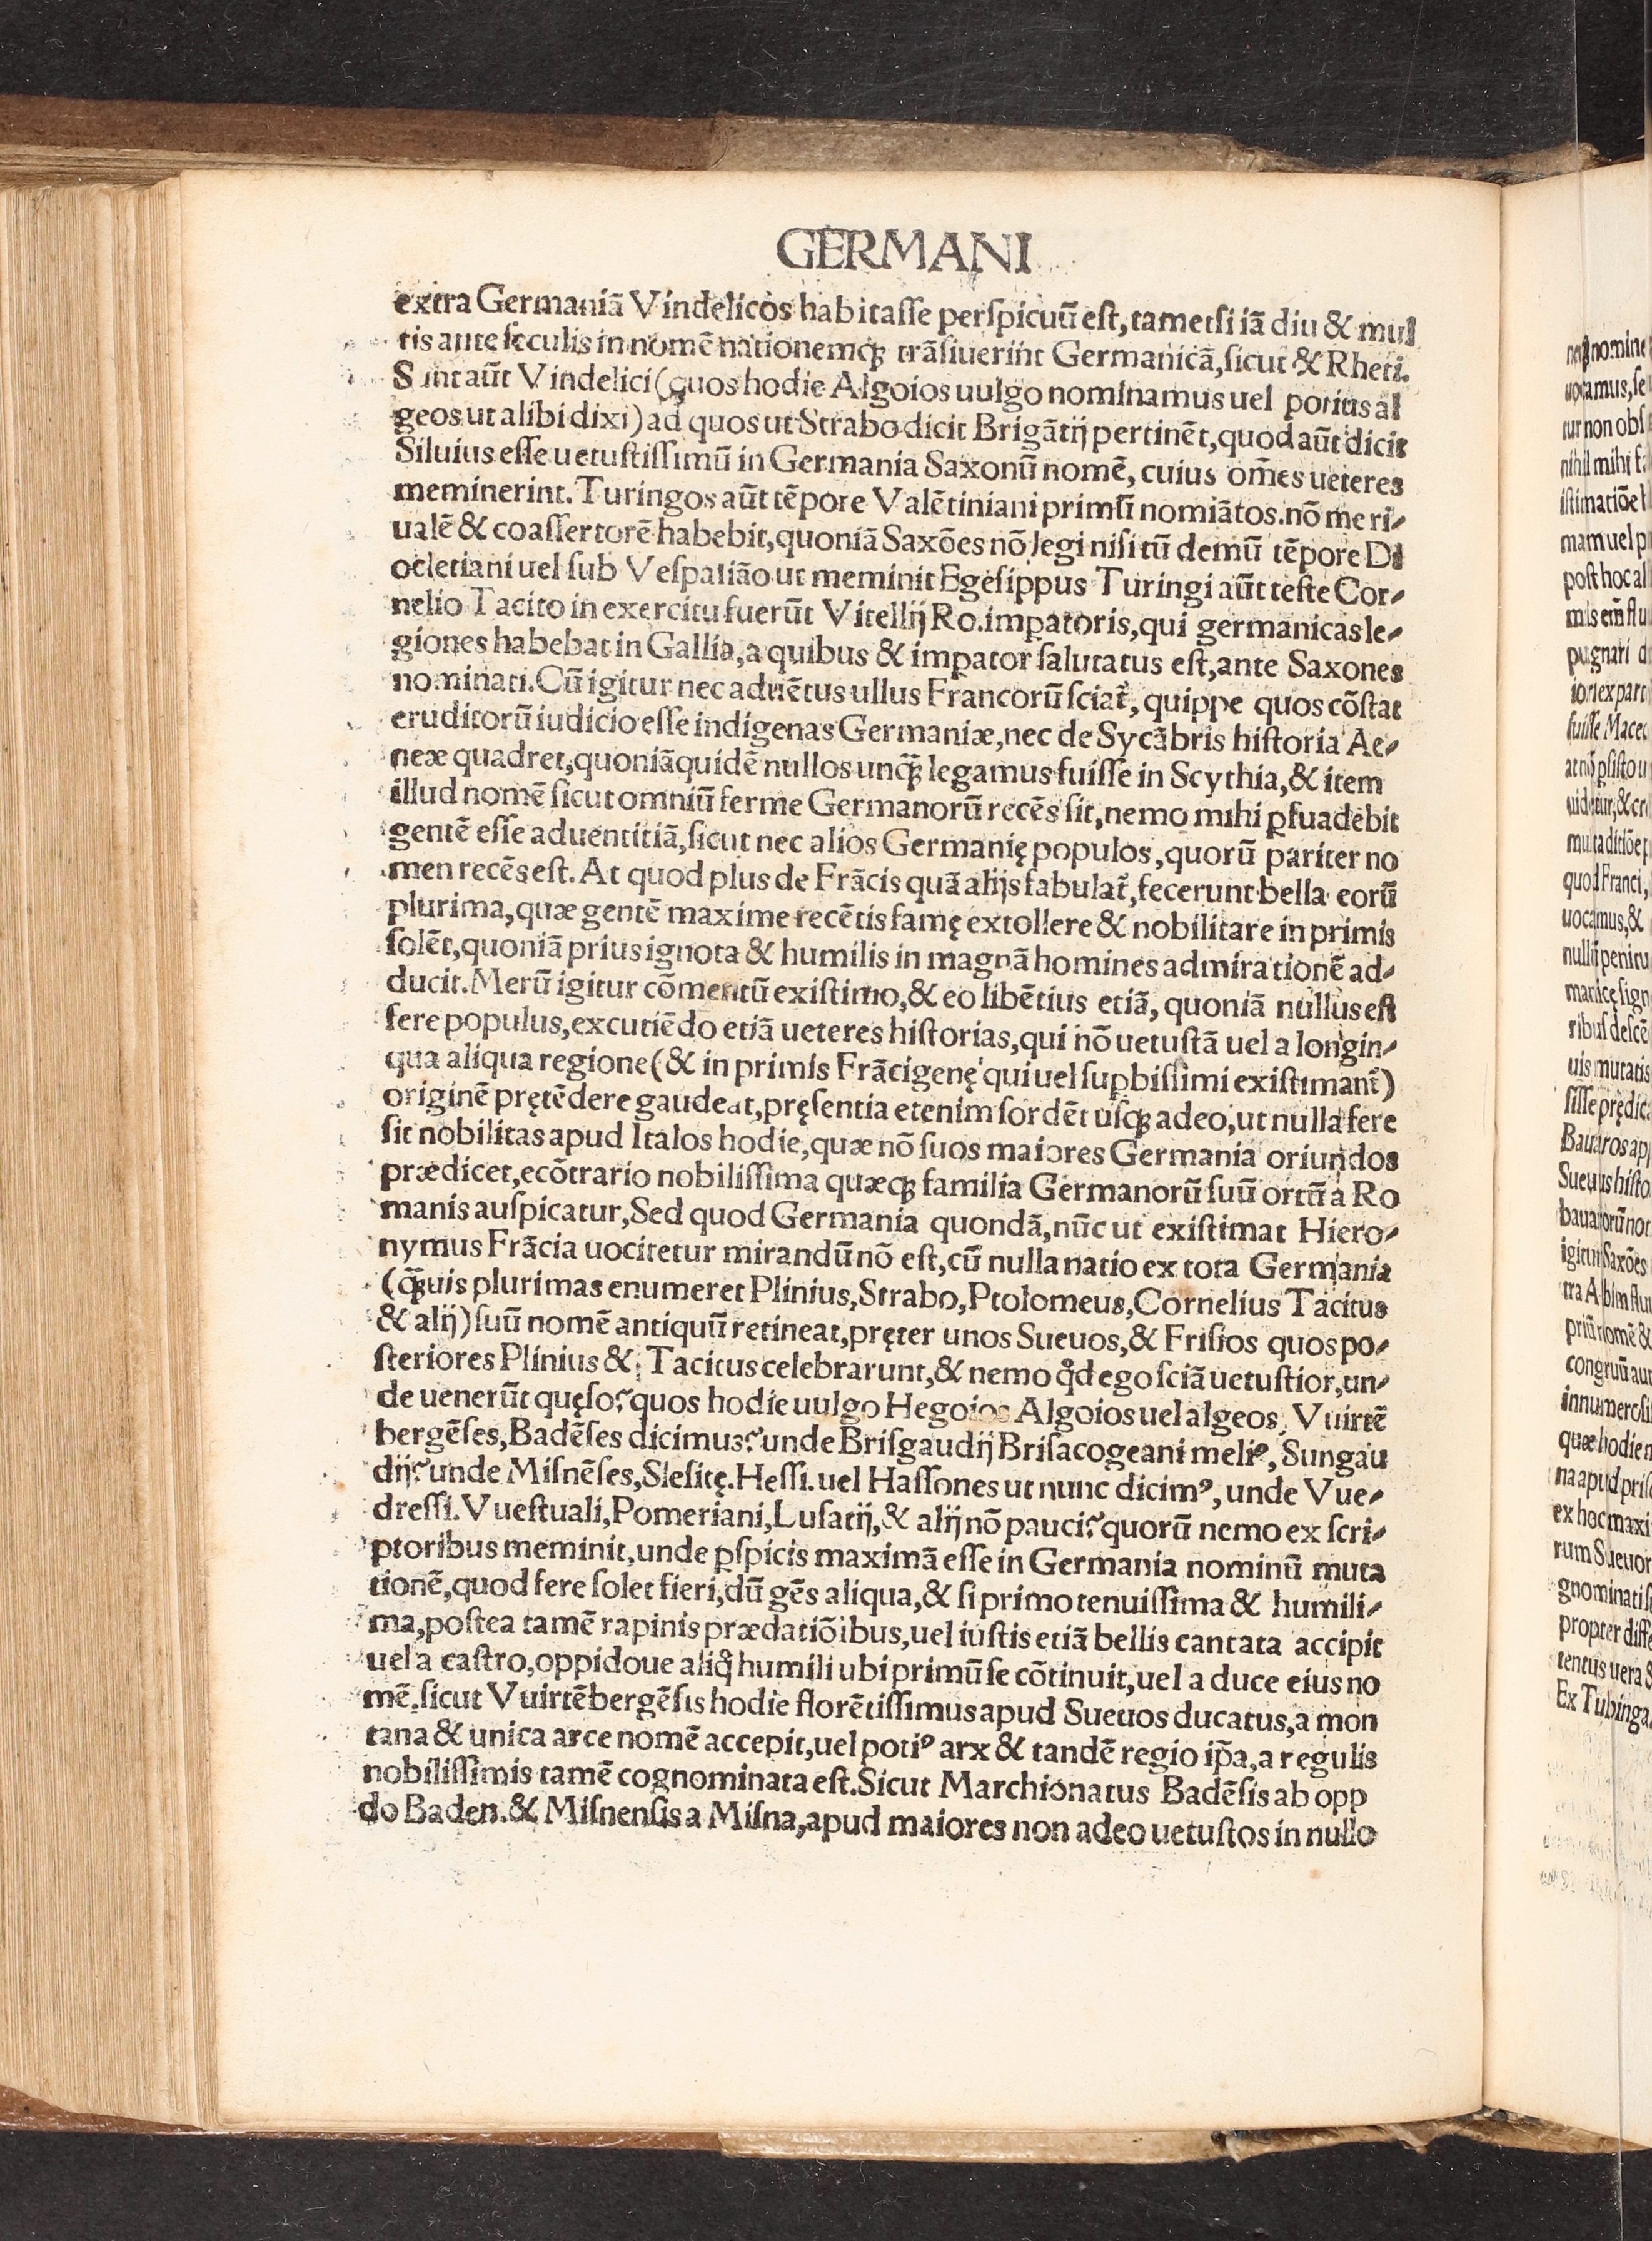 GERMANI
extra Germaniā Vindelicos habitaſſe perſpicuū eſt, tametſi iā diu & mul
tis ante ſeculis in nomē nationemqꝫ trāſiuerint Germanicā, ſicut & Rheti.
Sunt aūt Vindelici (quos hodie Algoios uulgo nominamus uel potius al
geos ut alibi dixi) ad quos ut Strabo dicit Brigātij pertinēt, quod aūt dicit
Siluius eſſe uetuſtiſſimū in Germania Saxonū nomē, cuius om̄es ueteres
meminerint. Turingos aūt tēpore Valētiniani primū nomiātos. nō me ri⸗
ualē & coaſſertorē habebit, quoniā Saxōes nō legi niſi tū demū tēpore Di
ocletiani uel ſub Veſpaſiāo ut meminit Egeſippus Turingi aūt teſte Cor⸗
nelio Tacito in exercitu fuerūt Vitellij Ro. imꝑatoris, qui germanicas le⸗
giones habebat in Gallia, a quibus & imꝑator ſalutatus eſt, ante Saxones
nominati. Cū igitur nec aduētus ullus Francorū ſciat̃, quippe quos cōſtat
eruditorū iudicio eſſe indigenas Germaniæ, nec de Sycābris hiſtoria Ae⸗
neæ quadret, quoniāquidē nullos unqꝫ̄ legamus fuiſſe in Scythia, & item
illud nomē ſicut omniū ferme Germanorū recēs ſit, nemo mihi ꝑſuadebit
gentē eſſe aduentitiā, ſicut nec alios Germanię populos, quorū pariter no
men recēs eſt. At quod plus de Frācis quā alijs fabulat̃, fecerunt bella eorū
plurima, quæ gentē maxime recētis famę extollere & nobilitare in primis
ſolēt, quoniā prius ignota & humilis in magnā homines admirationē ad⸗
ducit. Merū igitur cōmentū exiſtimo, & eo libētius etiā, quoniā nullus eſt
fere populus, excutiēdo etiā ueteres hiſtorias, qui nō uetuſtā uel a longin⸗
qua aliqua regione (& in primis Frācigenę qui uel ſuꝑbiſſimi exiſtimant̃)
originē prętēdere gaudeat, pręſentia etenim ſordēt uſqꝫ adeo, ut nulla fere
ſit nobilitas apud Italos hodie, quæ nō ſuos maiores Germania oriundos
prædicet, ecōtrario nobiliſſima quæqꝫ familia Germanorū ſuū ortū a Ro
manis auſpicatur, Sed quod Germania quondā, nūc ut exiſtimat Hiero⸗
nymus Frācia uocitetur mirandū nō eſt, cū nulla natio ex tota Germania
(qꝫ̄uis plurimas enumeret Plinius, Strabo, Ptolomeus, Cornelius Tacitus
& alij) ſuū nomē antiquū retineat, pręter unos Sueuos, & Friſios quos po⸗
ſteriores Plinius & Tacitus celebrarunt, & nemo qd̓ ego ſciā uetuſtior, un⸗
de uenerūt quęſo? quos hodie uulgo Hegoios Algoios uel algeos, Vuirtē
bergēſes, Badēſes dicimus? unde Briſgaudij Briſacogeani meliꝰ, Sungau
dij? unde Miſnēſes, Sleſitę. Heſſi. uel Haſſones ut nunc dicimꝰ, unde Vue⸗
dreſſi. Vueſtuali, Pomeriani, Luſatij, & alij nō pauci? quorū nemo ex ſcri⸗
ptoribus meminit, unde ꝑſpicis maximā eſſe in Germania nominū muta
tionē, quod fere ſolet fieri, dū gēs aliqua, & ſi primo tenuiſſima & humili⸗
ma, poſtea tamē rapinis prædatiōibus, uel iuſtis etiā bellis cantata accipit
uel a caſtro, oppidoue aliq̊ humili ubi primū ſe cōtinuit, uel a duce eius no
mē. ſicut Vuirtēbergēſis hodie florētiſſimus apud Sueuos ducatus, a mon
tana & unica arce nomē accepit, uel potiꝰ arx & tandē regio ip̄a, a regulis
nobiliſſimis tamē cognominata eſt. Sicut Marchionatus Badēſis ab opp
do Baden. & Miſnenſis a Miſna, apud maiores non adeo uetuſtos in nullo